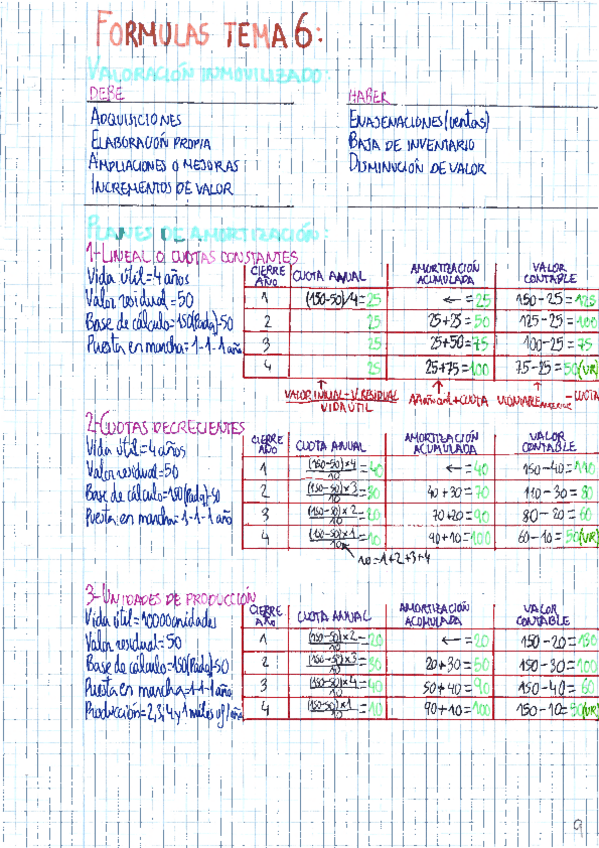 FORMULAS TEMA 6:
VALORACIÓN INMOVILIZADO:
DEBE
ADQUISICIONES
ELABORACIÓN PROPIA
AMPLIACIONES O MEJORAS
INCREMENTOS DE VALOR
HABER
ENAJENACIONES (ventas)
BAJA DE INVENTARIO
DISMINUCIÓN DE VALOR
PLANES DE AMORTIZACIÓN:
1-LINEAL O CUOTAS CONSTANTES
Vida útil=4 años
Valor residual=50
Base de cálculo=150 50
Puesta en marcha=1-1-1 año
CIERRE AÑO CUOTA ANUAL AMORTIZACIÓN ACUMULADA VALOR CONTABLE
1 (150-50)/4=25 ←=25 150-25=125
2 25 25+25=50 125-25=100
3 25 25+50=75 100-25=75
4 25 25+75=100 75-25=50(VR)
VALOR INICIAL-V.RESIDUAL
VIDA ÚTIL
+CUOTA
-CUOTA
2-CUOTAS DECRECIENTES
Vida útil=4 años
Valor residual=50
Base de cálculo=150 50
Puesta en marcha=1-1-1 año
CIERRE AÑO CUOTA ANUAL AMORTIZACIÓN ACUMULADA VALOR CONTABLE
1 (150-50)×4/10=40 ←=40 150-40=110
2 (150-50)×3/10=30 40+30=70 110-30=80
3 (150-50)×2/10=20 70+20=90 80-20=60
4 (150-50)×1/10=10 90+10=100 60-10=50(VR)
10=1+2+3+4
3-UNIDADES DE PRODUCCIÓN
Vida útil=10000unidades
Valor residual=50
Base de cálculo=150 50
Puesta en marcha=1-1-1 año
Producción=2,3,4 y 1 miles
CIERRE AÑO CUOTA ANUAL AMORTIZACIÓN ACUMULADA VALOR CONTABLE
1 (150-50)×2/10=20 ←=20 150-20=130
2 (150-50)×3/10=30 20+30=50 150-30=100
3 (150-50)×4/10=40 50+40=90 150-40=60
4 (150-50)×1/10=10 90+10=100 150-10=50(VR)
9